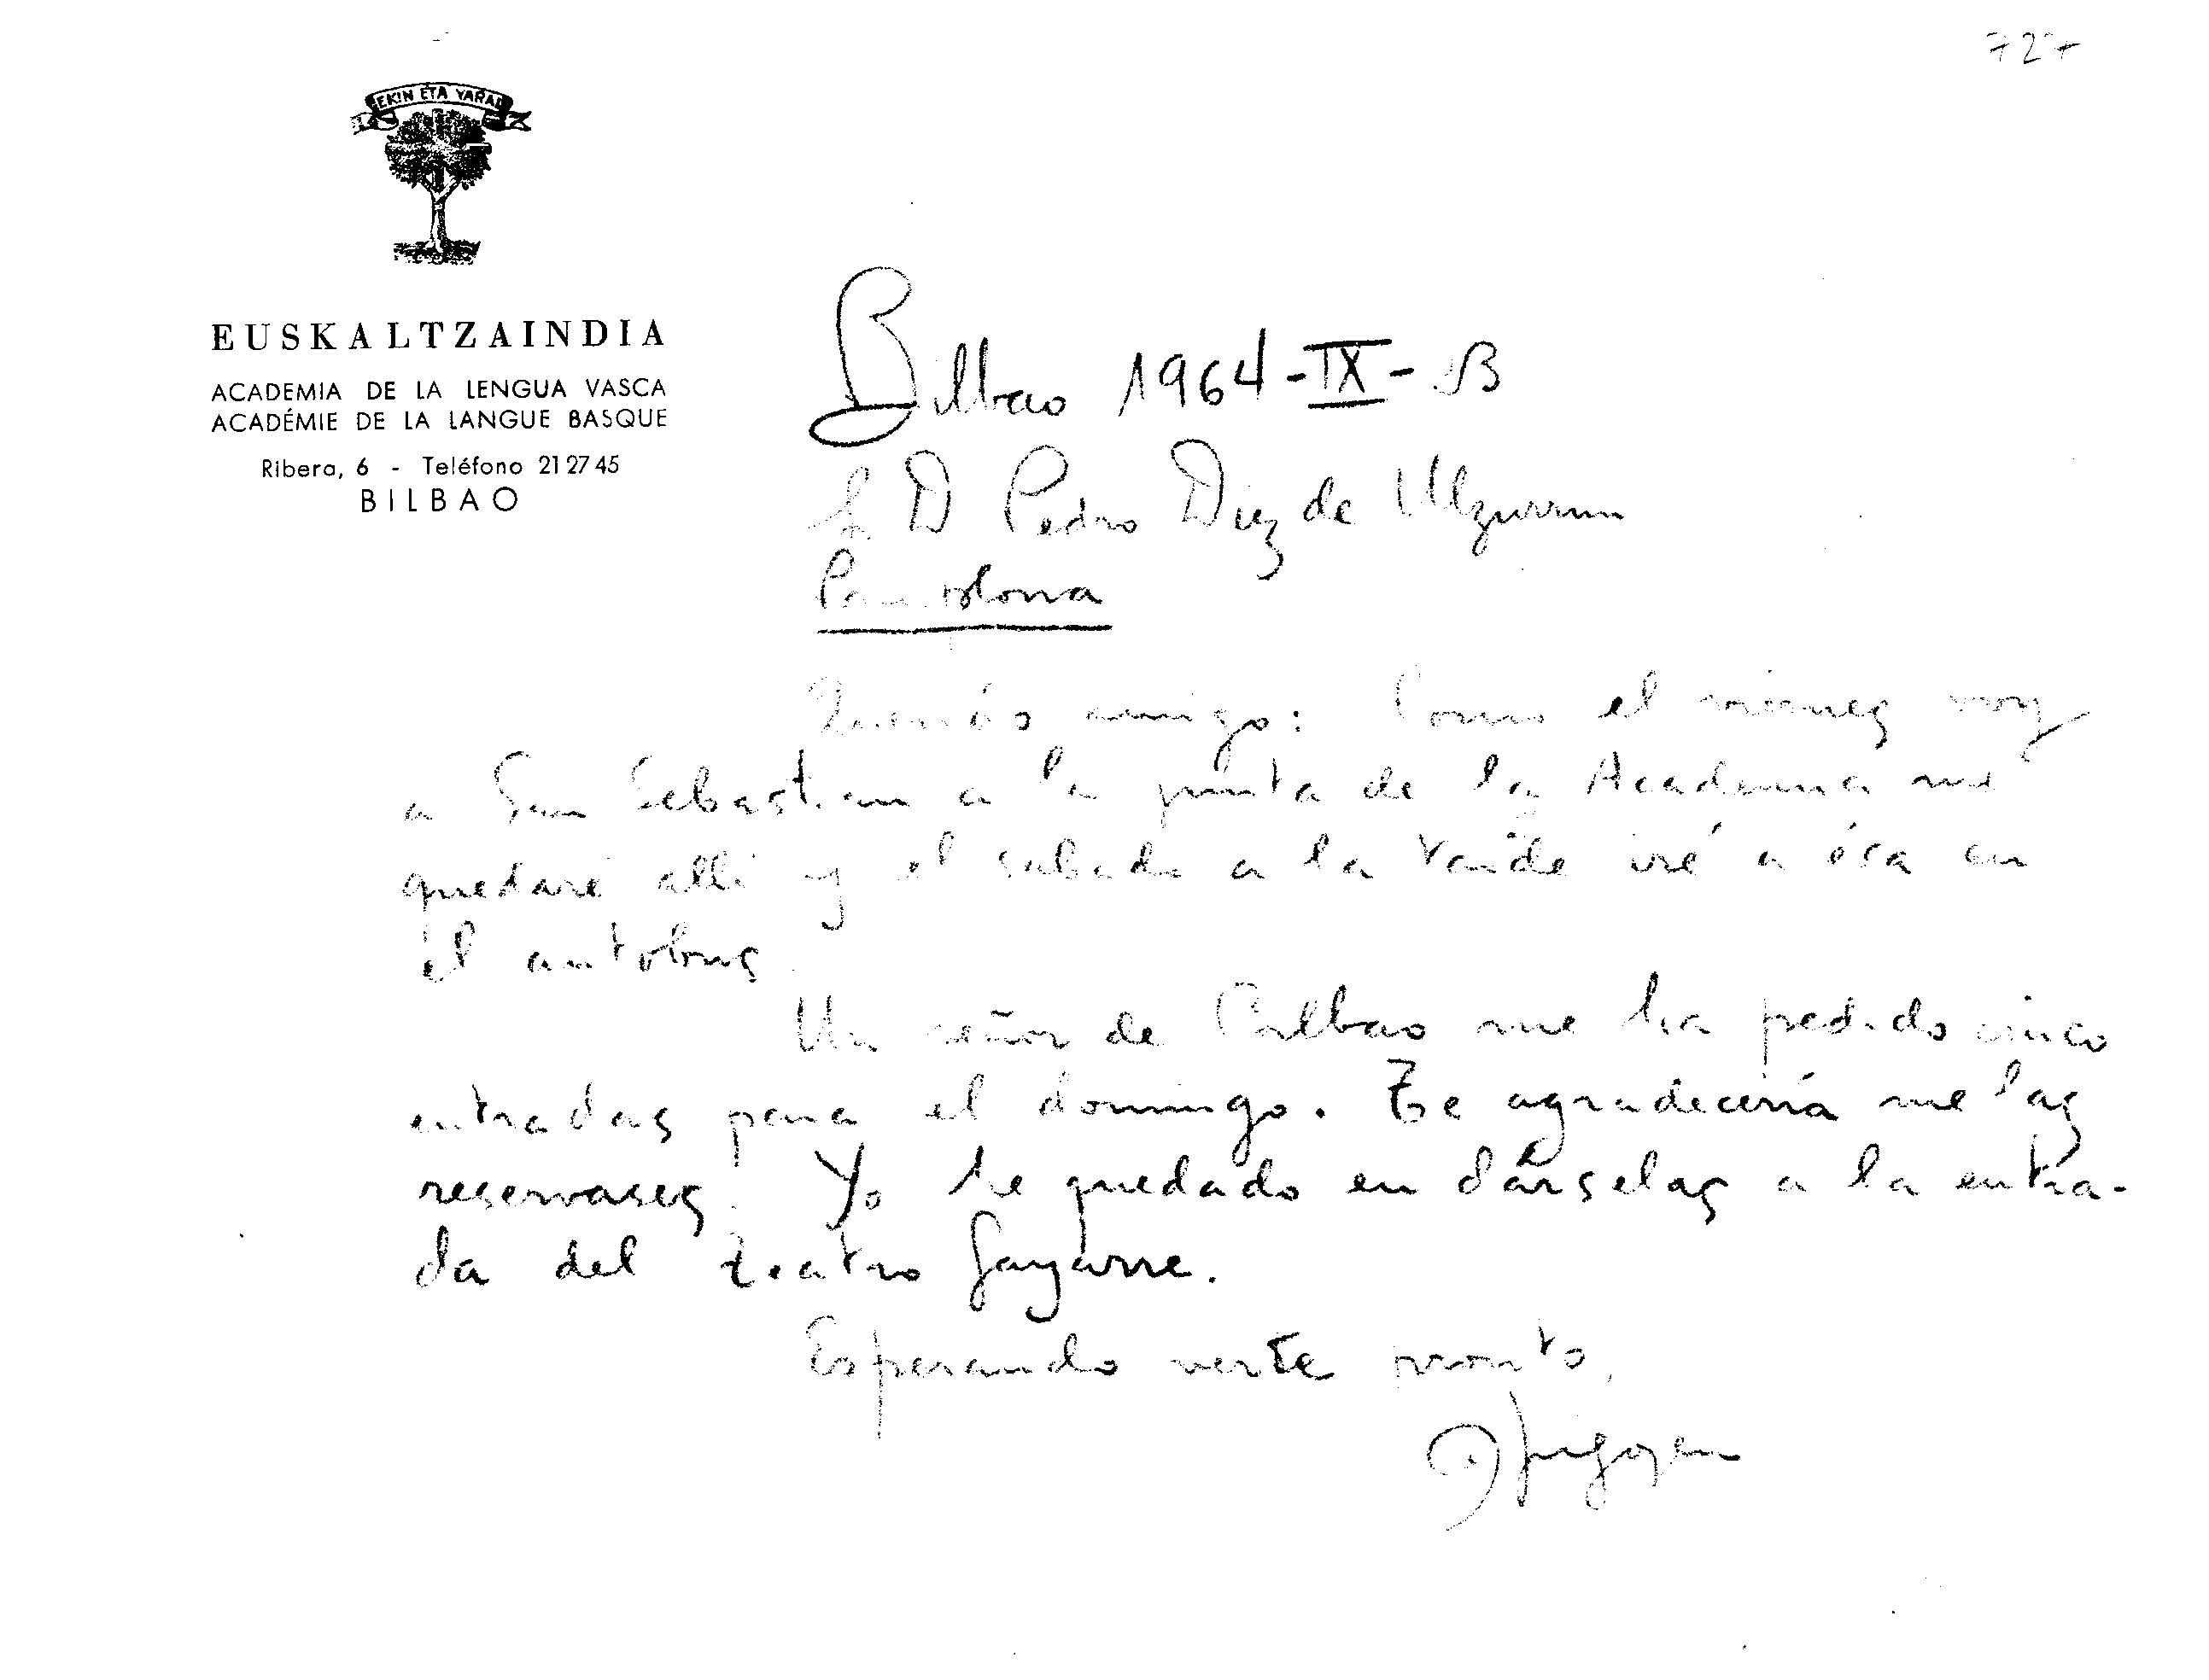 727
EKIN ETA YARAI
EUSKALTZAINDIA
ACADEMIA DE LA LENGUA VASCA
ACADÉMIE DE LA LANGUE BASQUE
Ribera, 6 - Teléfono 21 27 45
BILBAO
Bilbao 1964-IX-
Sr. D Pedro Diez de Ulzurrun
Pamplona
amigo: Como el viernes voy
a San Sebastian a la junta de la Academia me
quedaré alli y el sabado a la tarde iré a ésa en
el autobus
Un señor de Bilbao me ha pedido cinco
entradas para el domingo. Te agradecería me las
reservases. Yo he quedado en dárselas a la entra-
da del teatro Gayarre.
Esperando verte pronto,